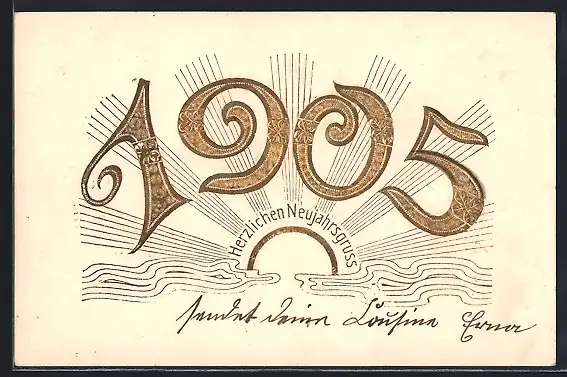 1905
Herzlichen Neujahrsgruss
sendet deine Cousine Erna